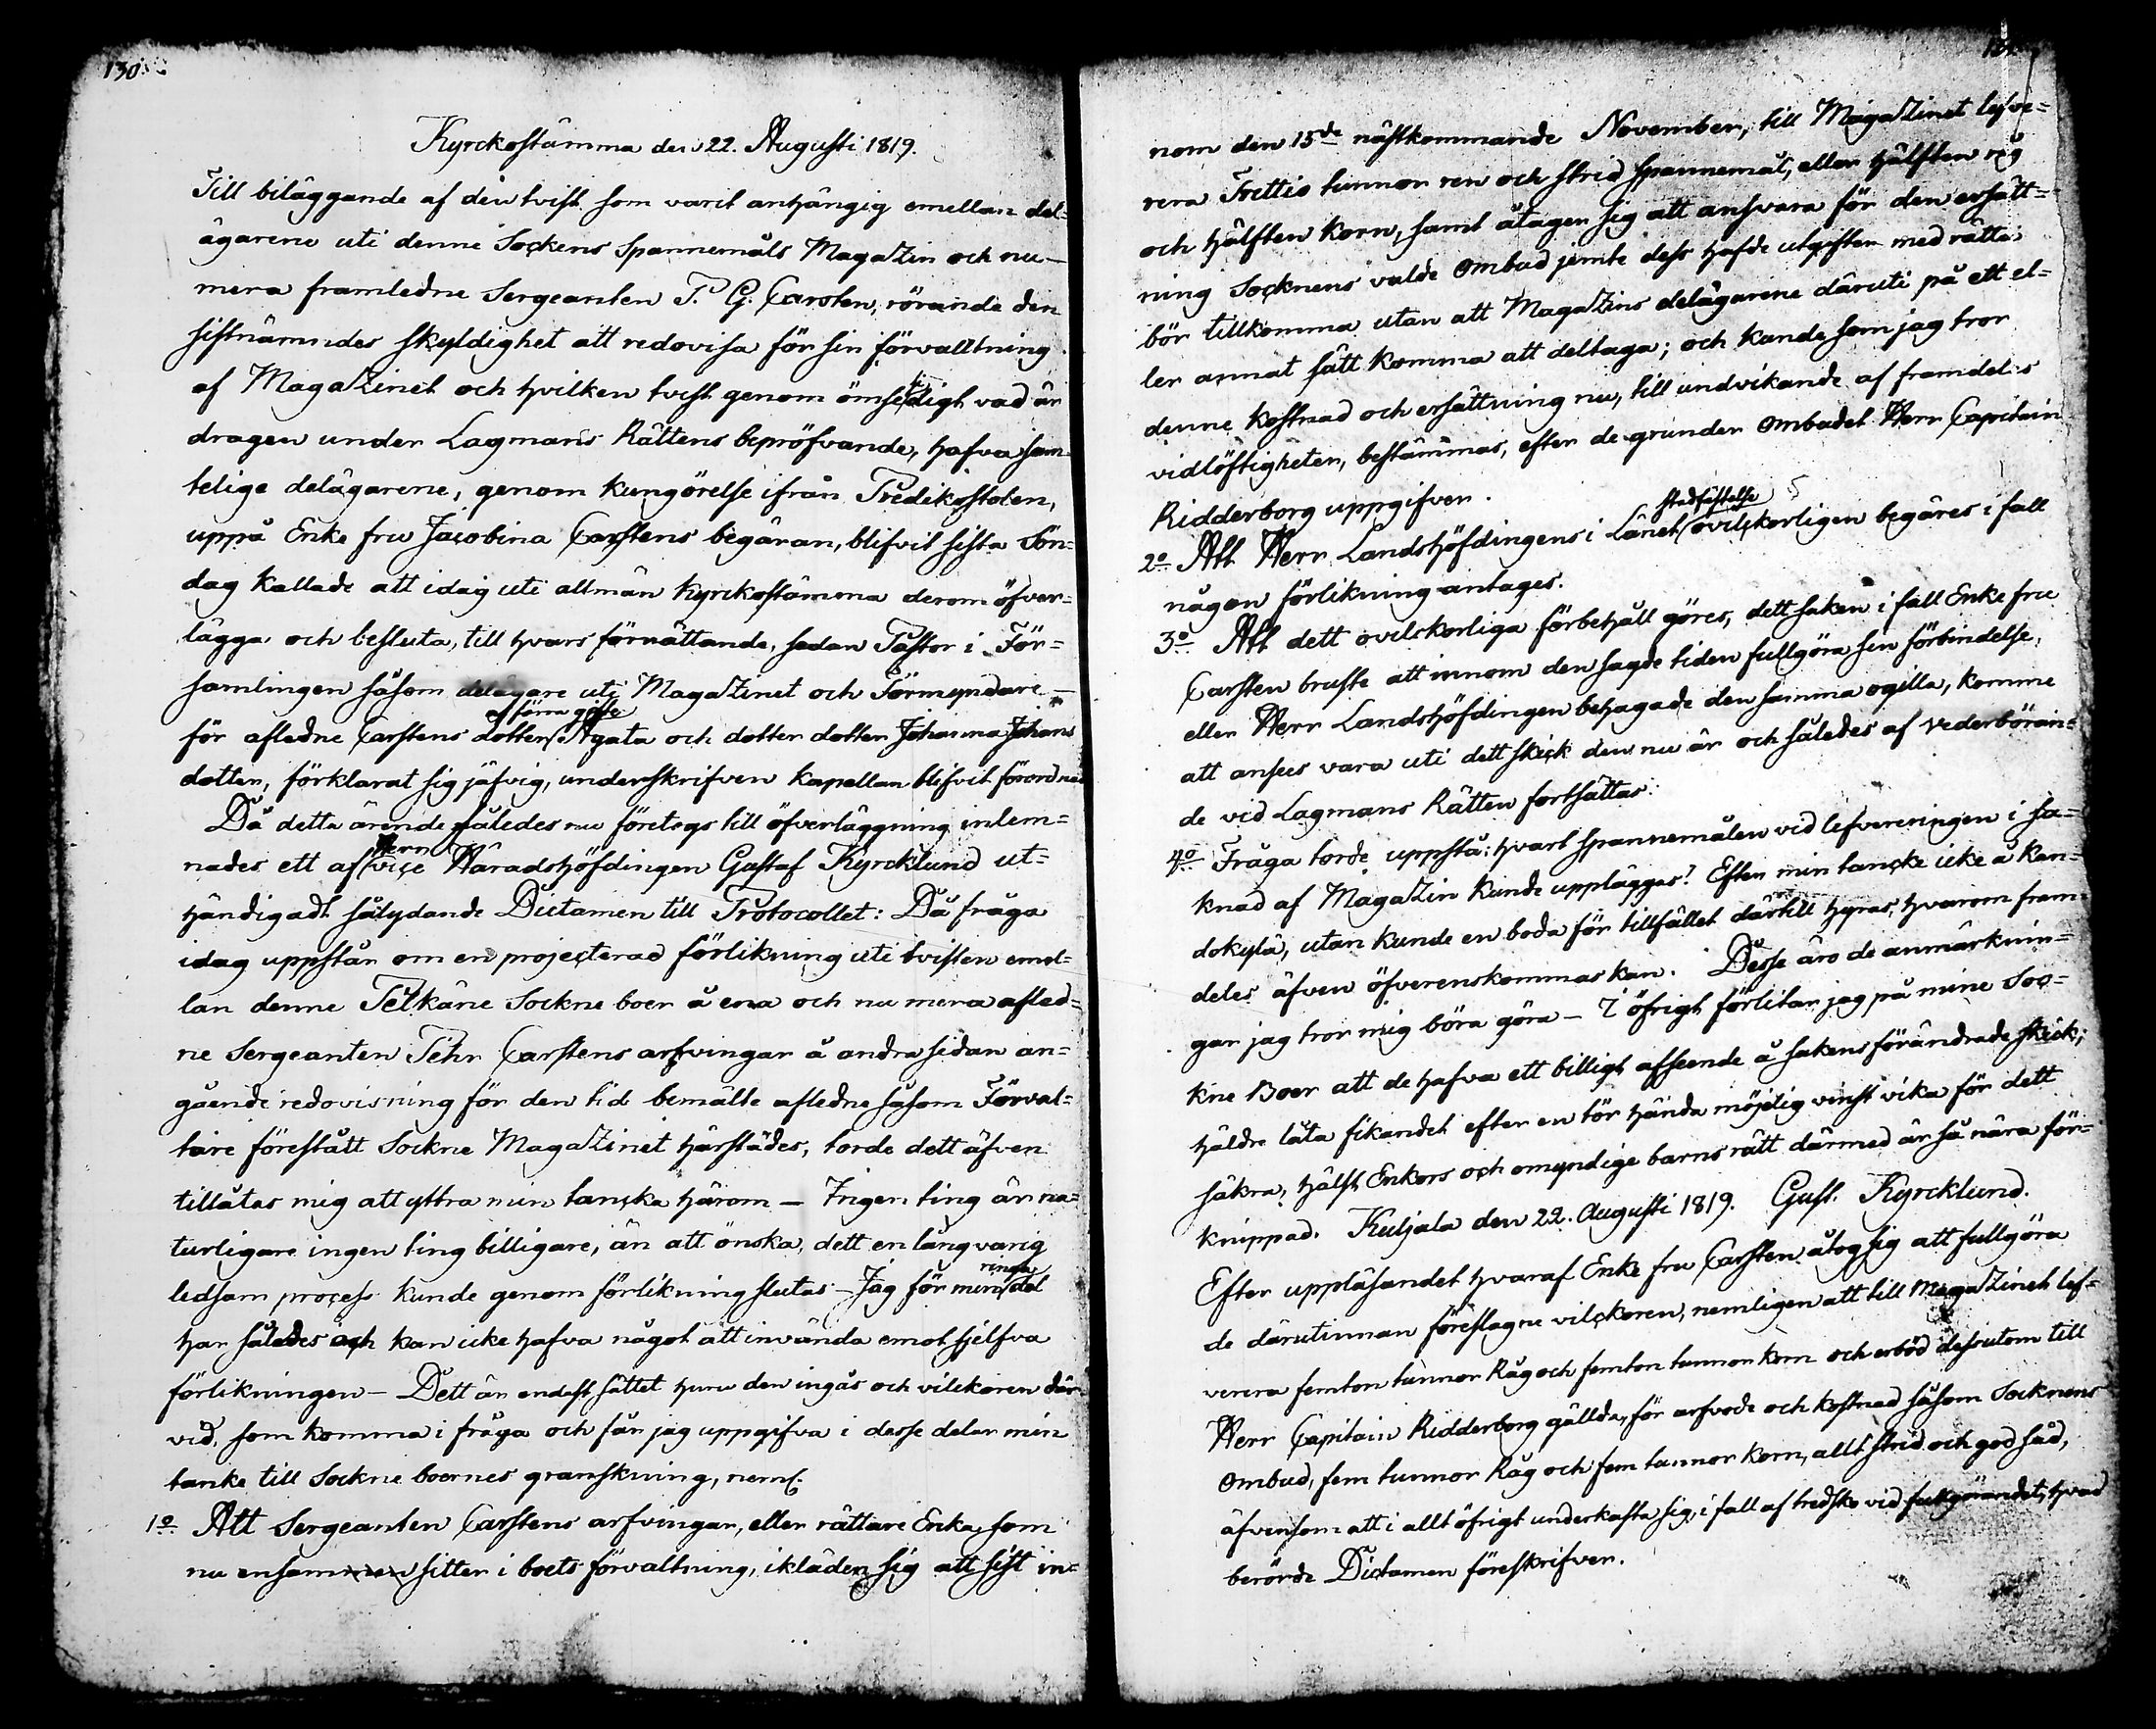 130
Kyrckostämma den 22. Augusti 1819.
Till biläggande af den tvist som varit anhängig emellan del-
ägarene uti denne Sockens Spannemåls Magazin och nu-
mera framledne Sergeanten P. G. Carsten, rörande den
sistnämndes skyldighet att redovisa för sin förvalltning
af Magazinet och hvilken tvist genom ömsesidigt vad är
dragen under Lagmans Rättens bepröfvande, hafva sam-
telige delägarene, genom kungörelse ifrån Predikostolen,
uppå Enke fru Jacobina Carstens begäran, blifvit sista Sön-
dag kallade att idag uti allmän Kyrckostämma derom öfver-
lägga och besluta, till hvars förrättande, sedan Pastor i För-
samlingen såsom delägare uti Magazinet och Förmyndare
för afledne Carstens af förra gifte dotter Agata och dotter dotter Johanna Johans
dotter, förklarat sig jäfvig, underskrifven Kapellan blifvit förordnad
Då detta ärende således nu företogs till öfverläggning inlem-
nades ett af Herr vice Häradshöfdingen Gustaf Kyrcklund ut-
händigadt sålydande Dictamen till Protocollet: Då fråga
idag uppstår om en projecterad förlikning uti tvisten emel-
lan denne Pelkäne Sockne boer å ena och nu mera afled-
ne Sergeanten Pehr Carstens arfvingar å andra sidan an-
gående redovisning för den tid bemälte afledne såsom Förval-
tare förestått Sockne Magazinet härstädes, torde dett äfven
tillåtas mig att yttra min tancka härom — Ingen ting är na-
turligare ingen ting billigare, än att önska, dett en långvarig
ledsam process kunde genom förlikning slutas — Jag för min ringa del
har således och kan icke hafva något att invända emot sjelfva
förlikningen — Dett är endast sättet huru den ingås och vilckoren där
vid, som komma i fråga och får jag uppgifva i desse delar min
tanke till Sockne boernes granskning, neml.
1o Att Sergeanten Carstens arfvingar, eller rättare Enka, som
nu ensam sitter i boets förvaltning, ikläder sig att sist in-
nom den 15de nästkommande November, till Magazinet lefve-
rera Trettio tunnor ren och strid Spannemål, eller hälften råg
och hälften korn, samt åtager sig att ansvara för den ersätt-
ning Socknens valde Ombud jemte dess hafde utgifter med rätta
bör tillkomma utan att Magazins delägarene däruti på ett el-
ler annat sätt komma att deltaga; och kunde som jag tror
denne kostnad och ersättning nu, till undvikande af framdeles
vidlöftigheter, bestämmas, efter de grunder Ombudet Herr Capitain
Ridderborg uppgifver.
2o Att Herr Landshöfdingens i Länet stadfästelse ovilckorligen begäres i fall
någon förlikning antages.
3o Att dett ovilckorliga förbehåll göres, dett saken i fall Enke fru
Carsten bruste att innom den sagde tiden fullgöra sin förbindelse,
eller Herr Landshöfdingen behagade den samma ogilla, komme
att anses vara uti dett skick den nu är och således af vederböran-
de vid Lagmans Rätten fortsättas.
4o Fråga torde uppstå: hvart spannemålen vid lefvereringen i sa-
knad af Magazin kunde uppläggas? Efter min tancke icke å Ran-
dokylä, utan kunde en boda för tillfället därtill hyras, hvarom fram-
deles äfven öfverenskommas kan. Desse äro de anmärknin-
gar jag tror mig böra göra — I öfrigt förlitar jag på mine Soc-
kne Boer att de hafva ett billigt afseende å sakens förändrade skick;
häldre låta fikandet efter en tör hända möjelig vinst vika för dett
säkra, hälst Enkors och omyndige barns rätt därmed är så nära för-
knippad. Kuljala den 22. Augusti 1819. Gust. Kyrcklund.
Efter uppläsandet hvaraf Enke fru Carsten åtog sig att fullgöra
de därutinnan föreslagne vilckoren, nemligen att till Magazinet lef-
verera femton tunnor Råg och femton tunnor korn och erbjöd dessutom till
Herr Capitain Ridderborg gällda, för arfvode och kostnad såsom Socknens
Ombud, fem tunnor Råg och fem tunnor korn, allt strid och god säd,
äfvensom att i allt öfrigt underkasta sig, i fall af tredsko vid fullgörandet, hvad
berörde Dictamen föreskrifver.